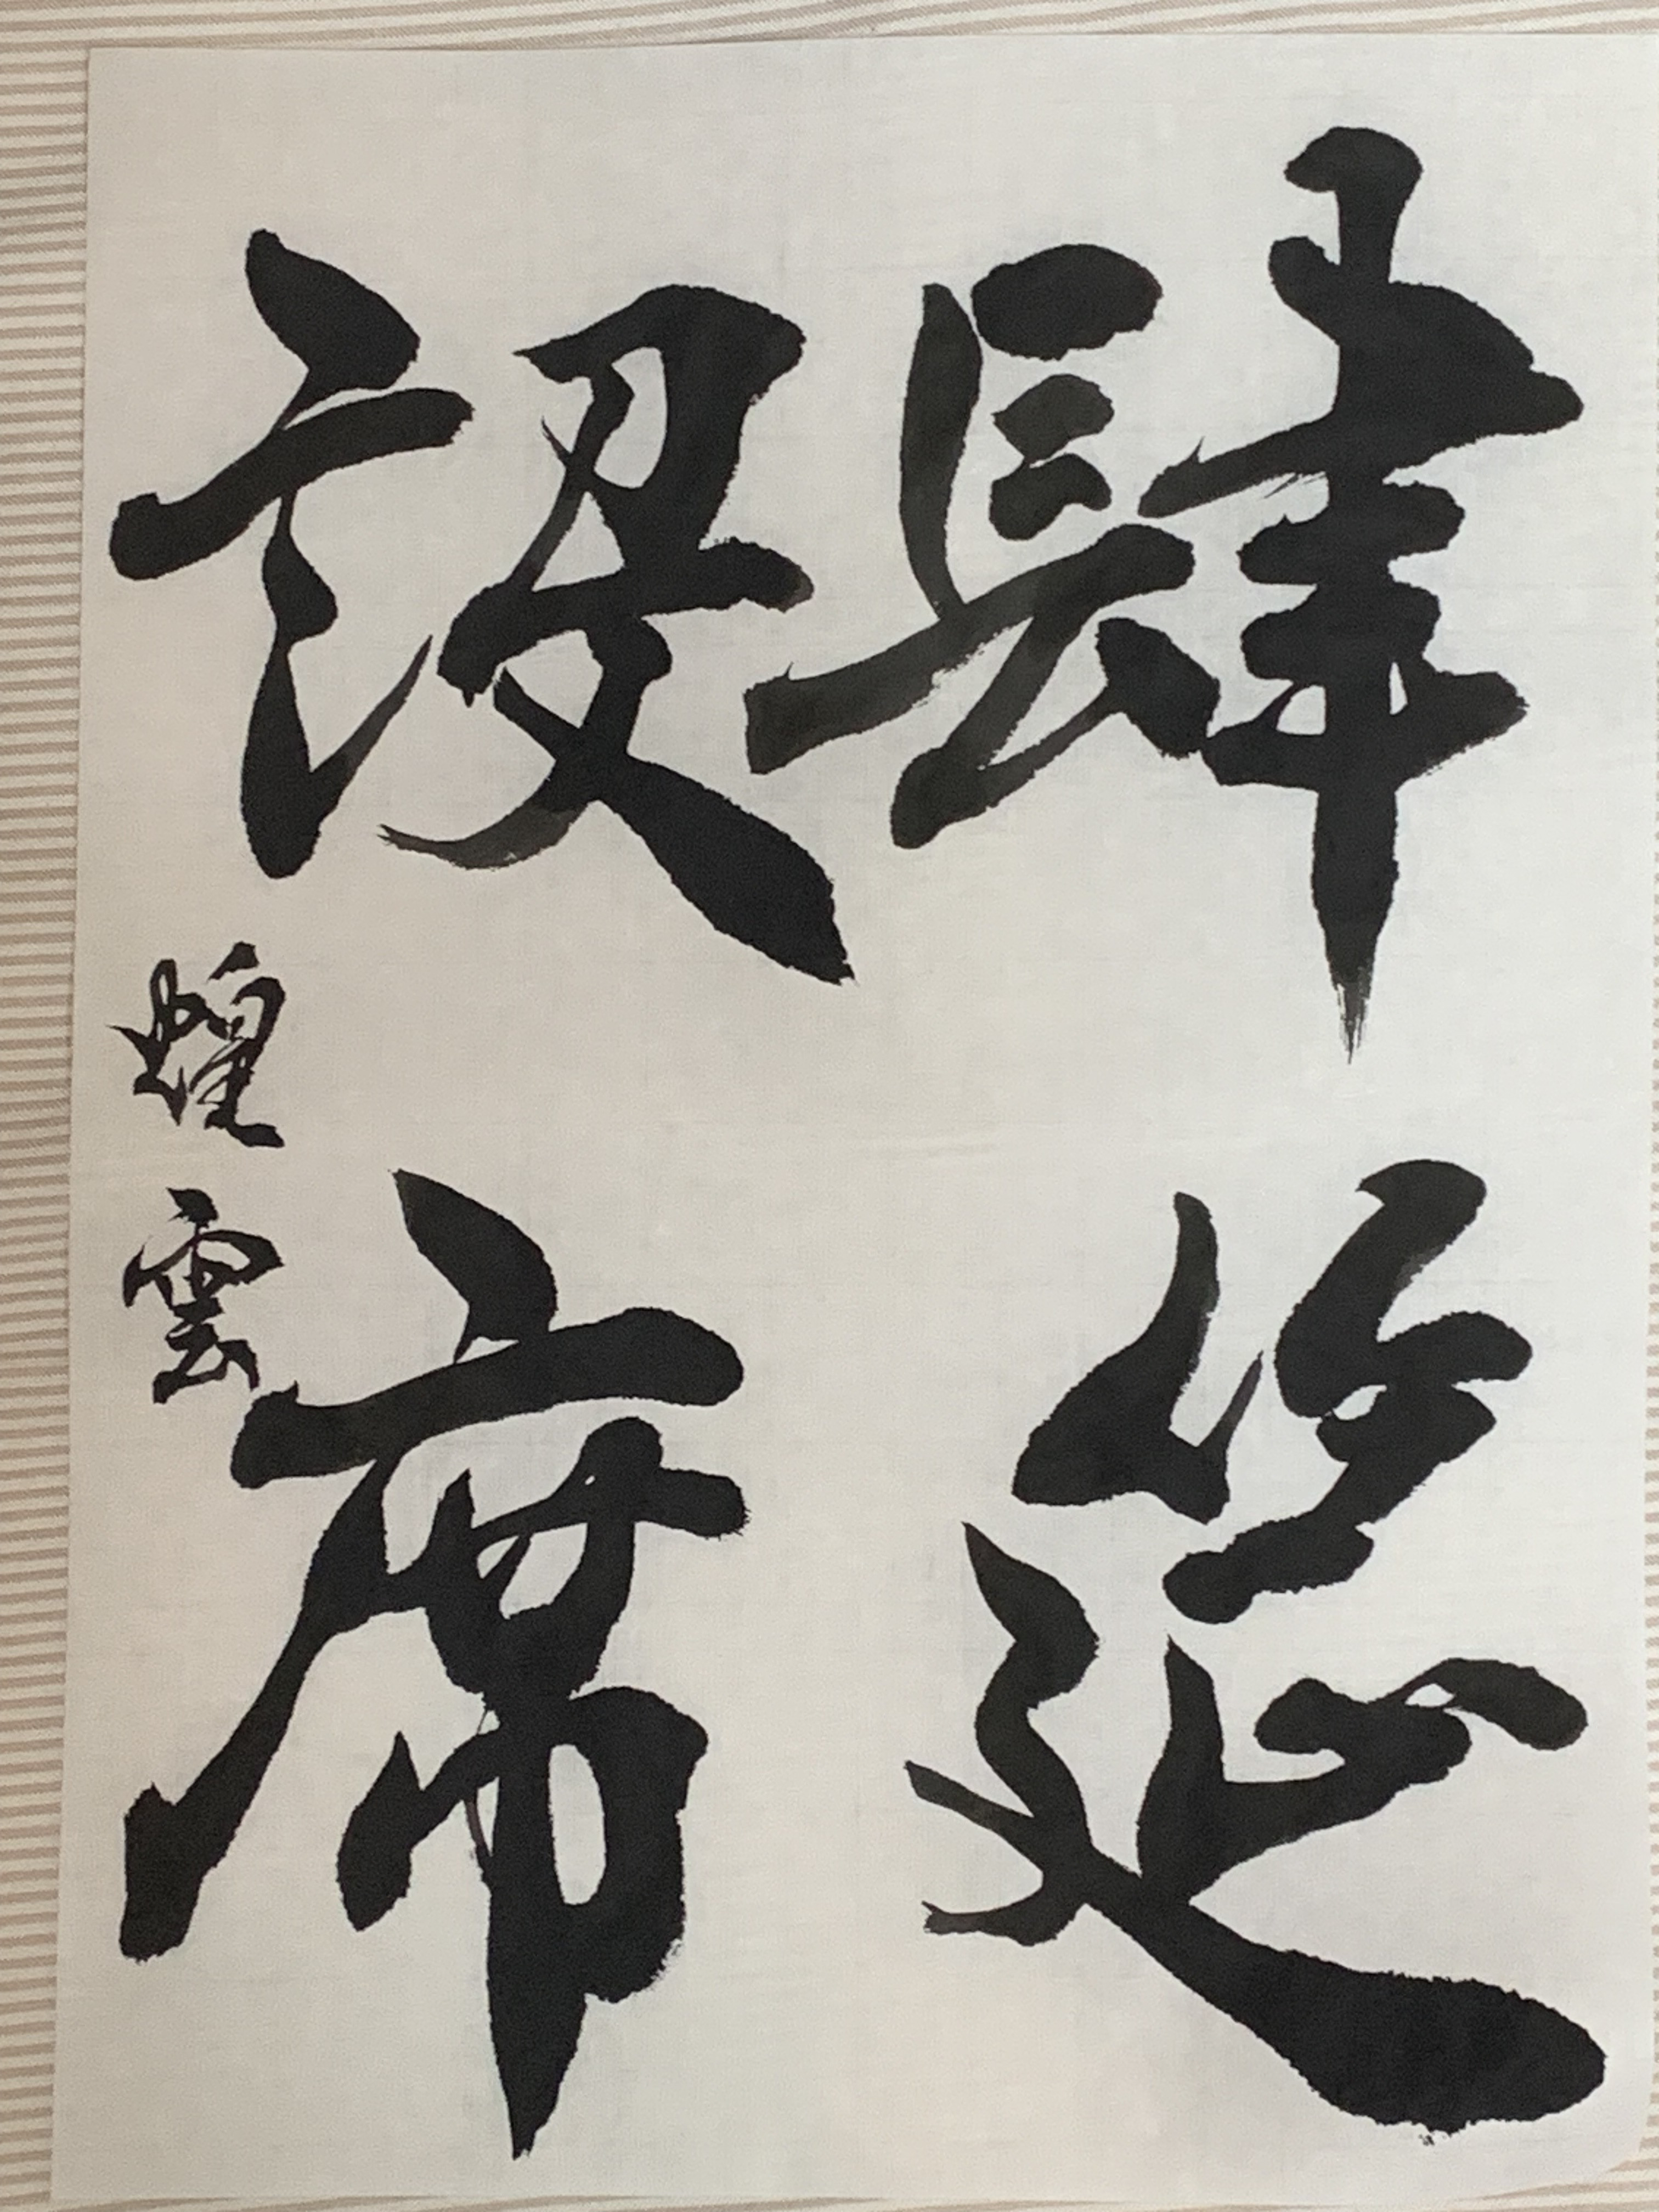 肆筵
設席
煌雲